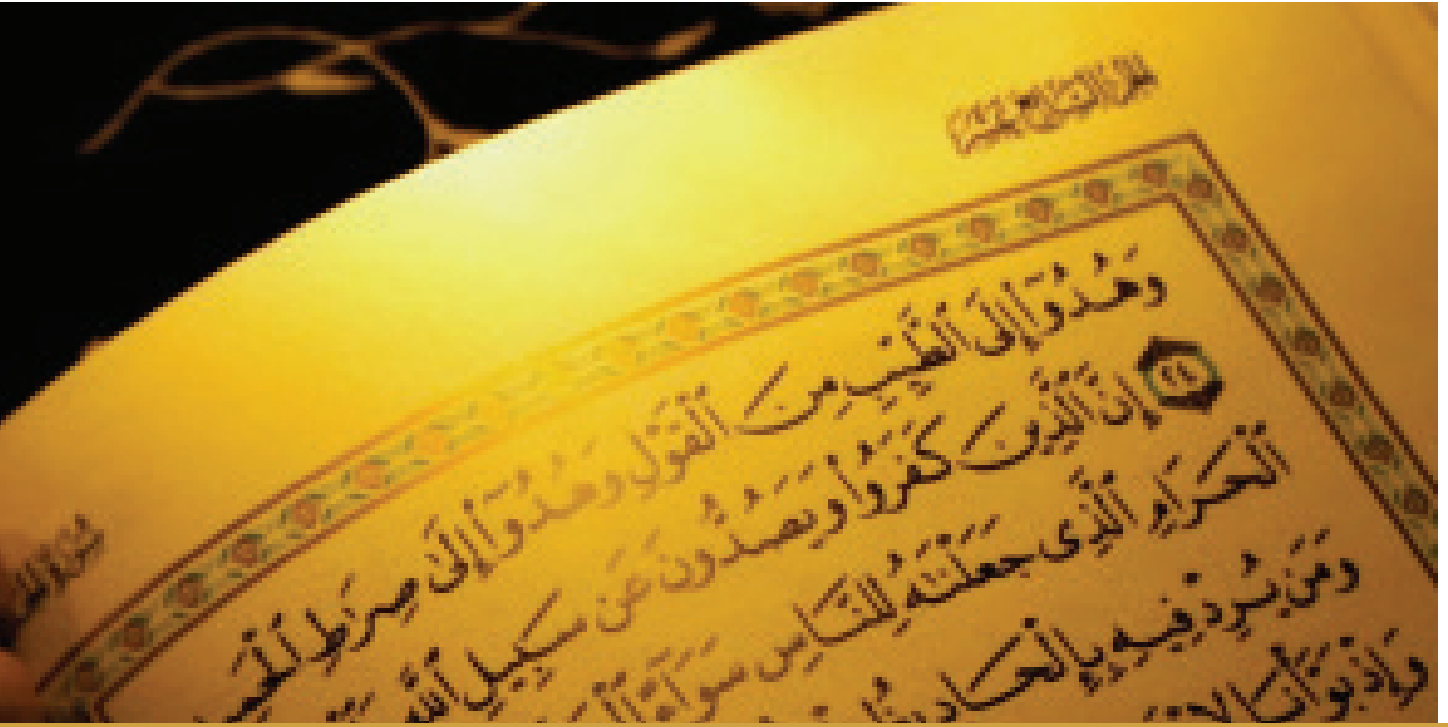 الجزء السابع عشر
سورة الحج
وَهُدُوٓا۟ إِلَى ٱلطَّيِّبِ مِنَ ٱلْقَوْلِ وَهُدُوٓا۟ إِلَىٰ صِرَٰطِ ٱلْحَمِيدِ
٢٤ إِنَّ ٱلَّذِينَ كَفَرُوا۟ وَيَصُدُّونَ عَن سَبِيلِ ٱللَّهِ
ٱلْحَرَامِ ٱلَّذِى جَعَلْنَٰهُ لِلنَّاسِ سَوَآءً
وَمَن يُرِدْ فِيهِ بِإِلْحَادٍۭ
وَإِذْ بَوَّأْنَا